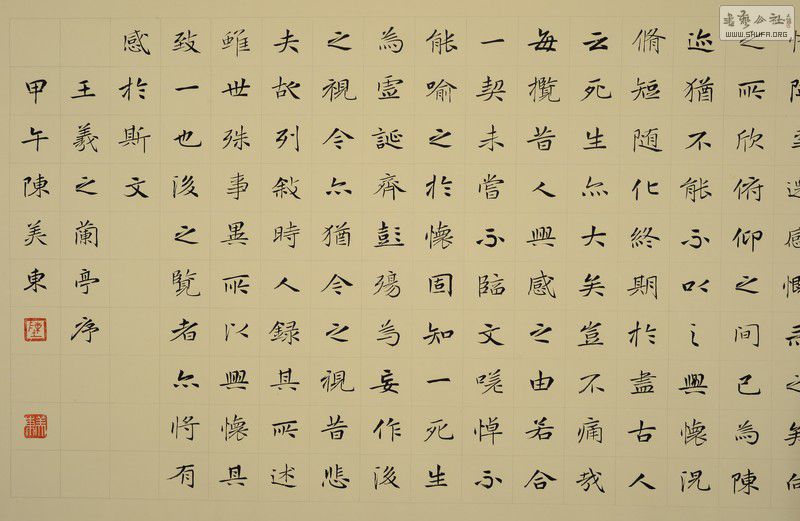 之所欣俯仰之間已為陳
迹猶不能不以之興懷況
脩短随化終期於盡古人
云死生亦大矣豈不痛哉
每攬昔人興感之由若合
一契未嘗不臨文嗟悼不
能喻之於懷固知一死生
為虛誕齊彭殤為妄作後
之視今亦猶今之視昔悲
夫故列敘時人録其所述
雖世殊事異所以興懷其
致一也後之覽者亦將有
感於斯文
王羲之蘭亭序
甲午陳美東
美東
书艺公社
WWW.SHUFA.ORG